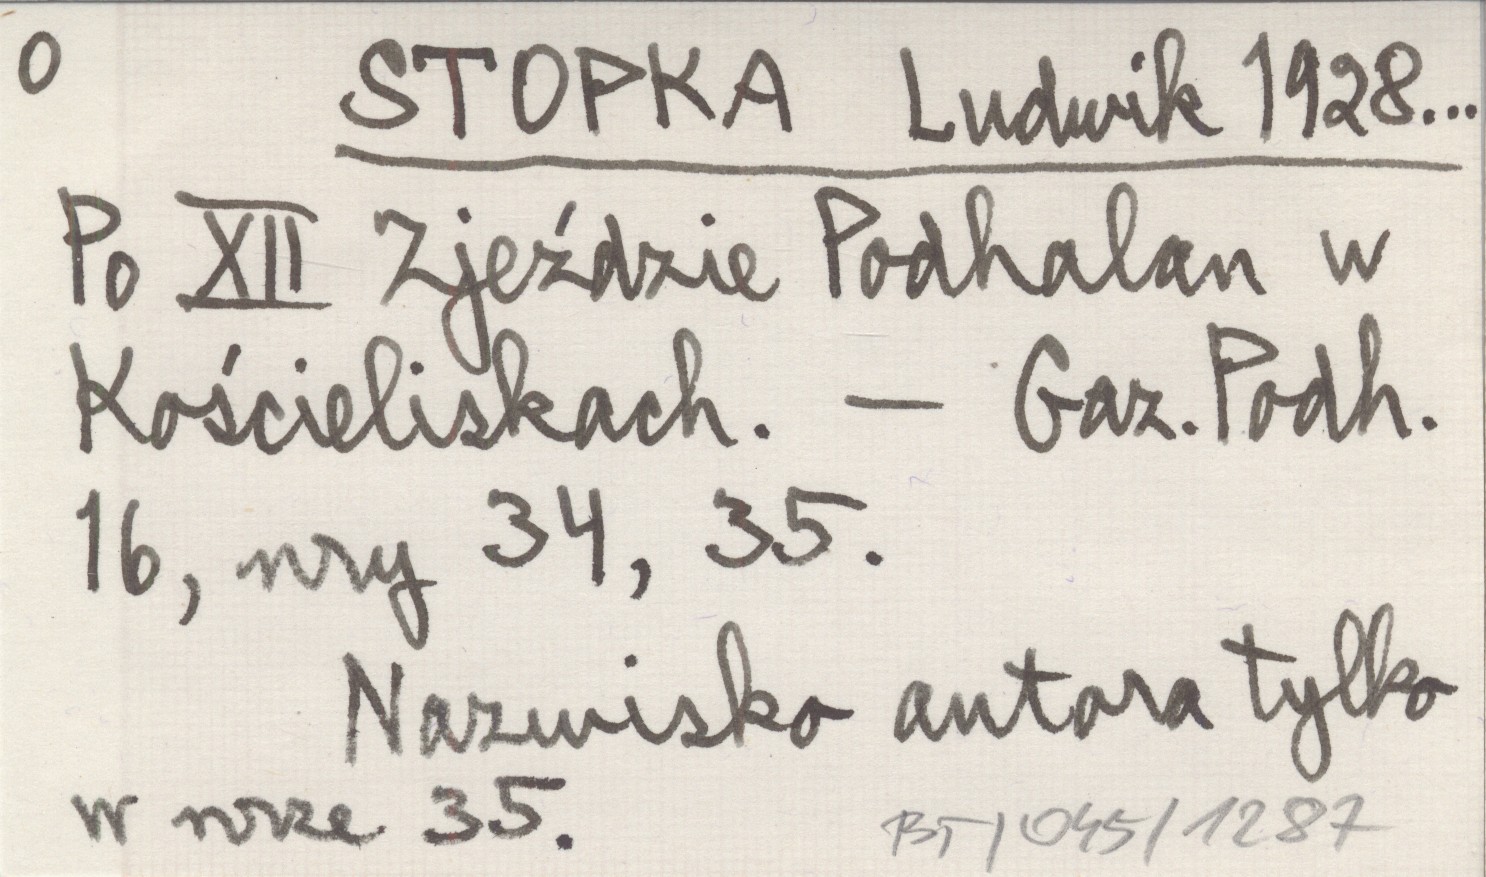 O STOPKA Ludwik 1928...
Po XII Zjeździe Podhalan w
Kościeliskach. — Gaz. Podh.
16, nry 34, 35.
Nazwisko autora tylko
w nrze 35.
BT/045/1287